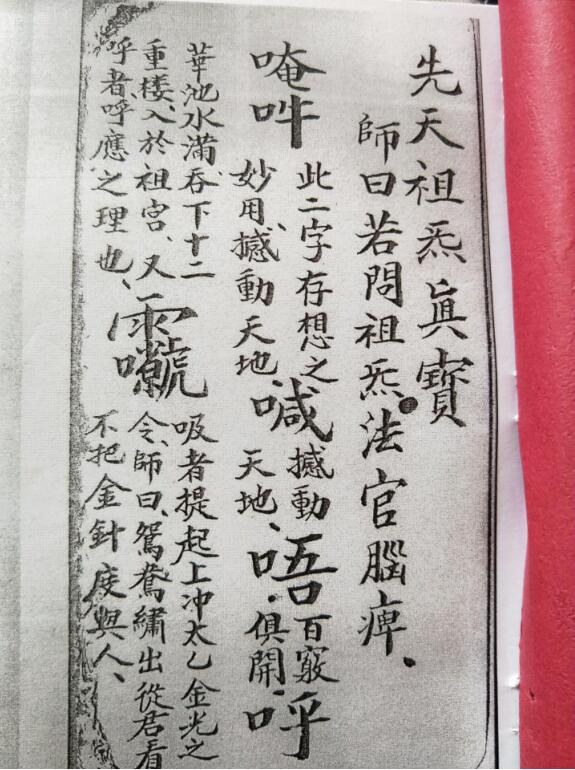 先天祖炁眞寶
師曰若問祖炁法官腦痺、
唵吽
此二字存想之
妙用、撼動天地
喊
撼動
天地、
唔
百竅
俱開、
呼
華池水滿、吞下十二
重楼、入於祖宮、又
呼者呼應之理也、
吸者提起上冲太乙金光之
令、師曰、鴛鴦繡出從君看
不把金針度與人、